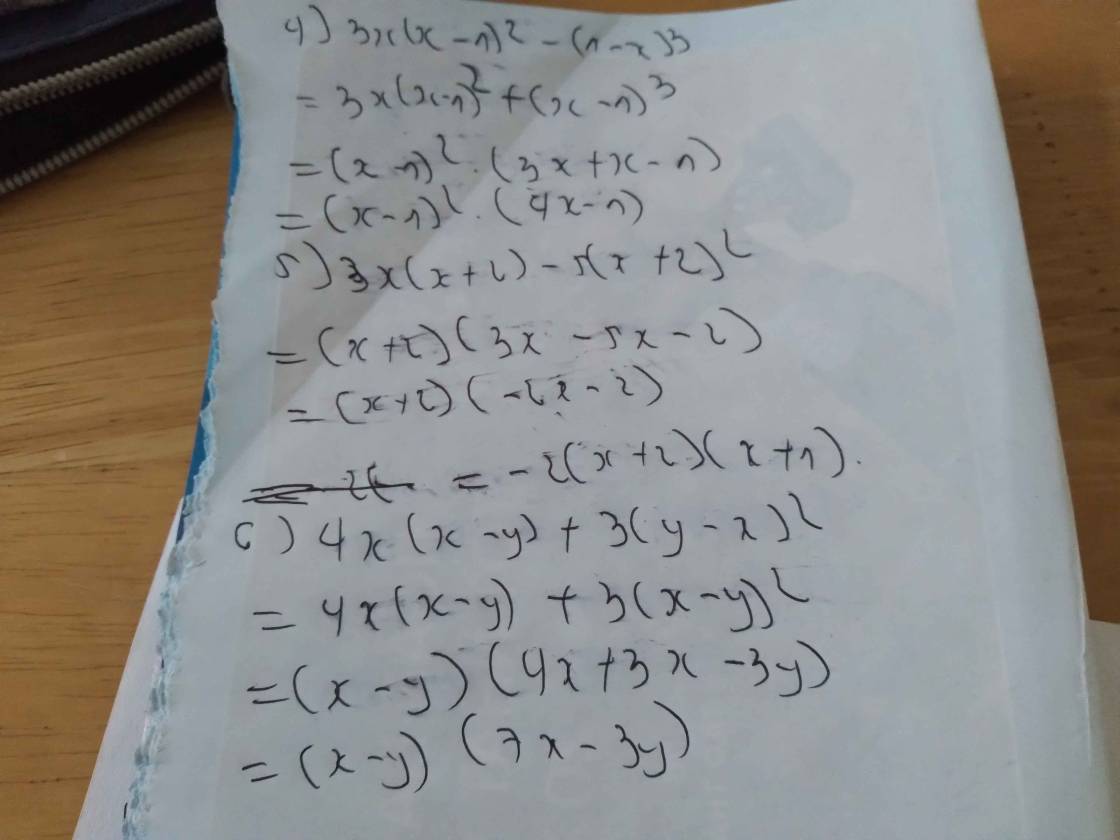 4) 3x(x-1)² - (1-x)3
= 3x(x-1)² + (x-1)³
= (x-1)² . (3x+x-1)
= (x-1)² . (4x-1)
5) 3x(x+2) - 5(x+2)²
= (x+2)(3x - 5x - 2)
= (x+2)(-2x - 2)
= -2(x+2)(x+1).
6) 4x(x-y) + 3(y-x)²
= 4x(x-y) + 3(x-y)²
= (x-y)(4x+3x-3y)
= (x-y)(7x-3y)